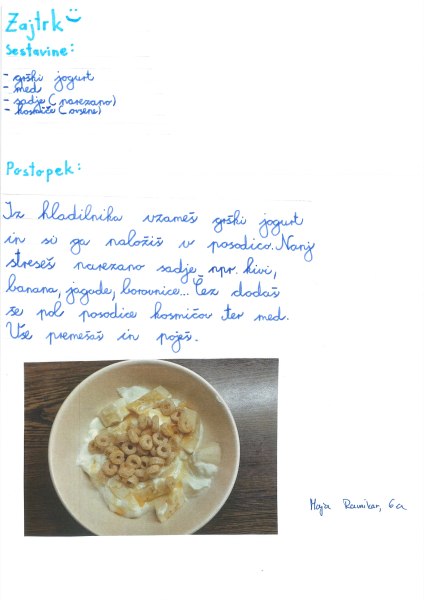 Zajtrk
Sestavine:
- grški jogurt
- med
- sadje (narezano)
- kosmiče (ovsene)
Postopek:
Iz hladilnika vzameš grški jogurt
in si ga naložiš v posodico. Nanj
streseš narezano sadje npr. kivi,
banana, jagode, borovnice... Čez dodaš
še pol posodice kosmičov ter med.
Vse premešaš in poješ.
Maja 6.a